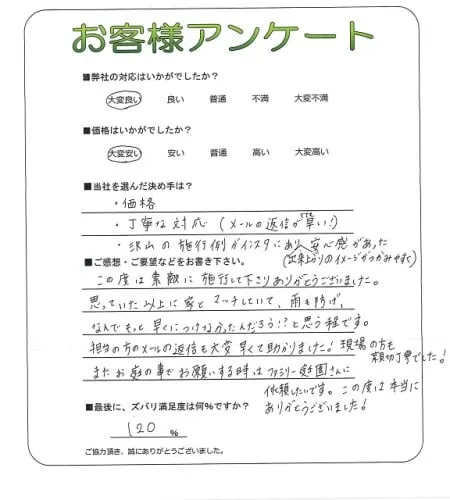 お客様アンケート
■弊社の対応はいかがでしたか？
大変良い 良い 普通 不満 大変不満
■価格はいかがでしたか？
大変安い 安い 普通 高い 大変高い
■当社を選んだ決め手は？
・価格
・丁寧な対応（メールの返信が早い！）
・沢山の施行例がインスタにあり、安心感があった
（出来上がりのイメージがつかみやすく）
■ご感想・ご要望などをお書き下さい。
この度は素敵に施行して下さりありがとうございました。
思っていた以上に家とマッチしていて、雨も防げ、
なんでもっと早くにつけなかったんだろう！？と思う程です。
担当の方のメールの返信も大変早くて助かりました！現場の方も
親切丁寧でした！
またお庭の事でお願いする時はファミリー庭園さんに
依頼したいです。この度は本当に
ありがとうございました！
■最後に、ズバリ満足度は何％ですか？
120 ％
ご協力頂き、誠にありがとうございました。